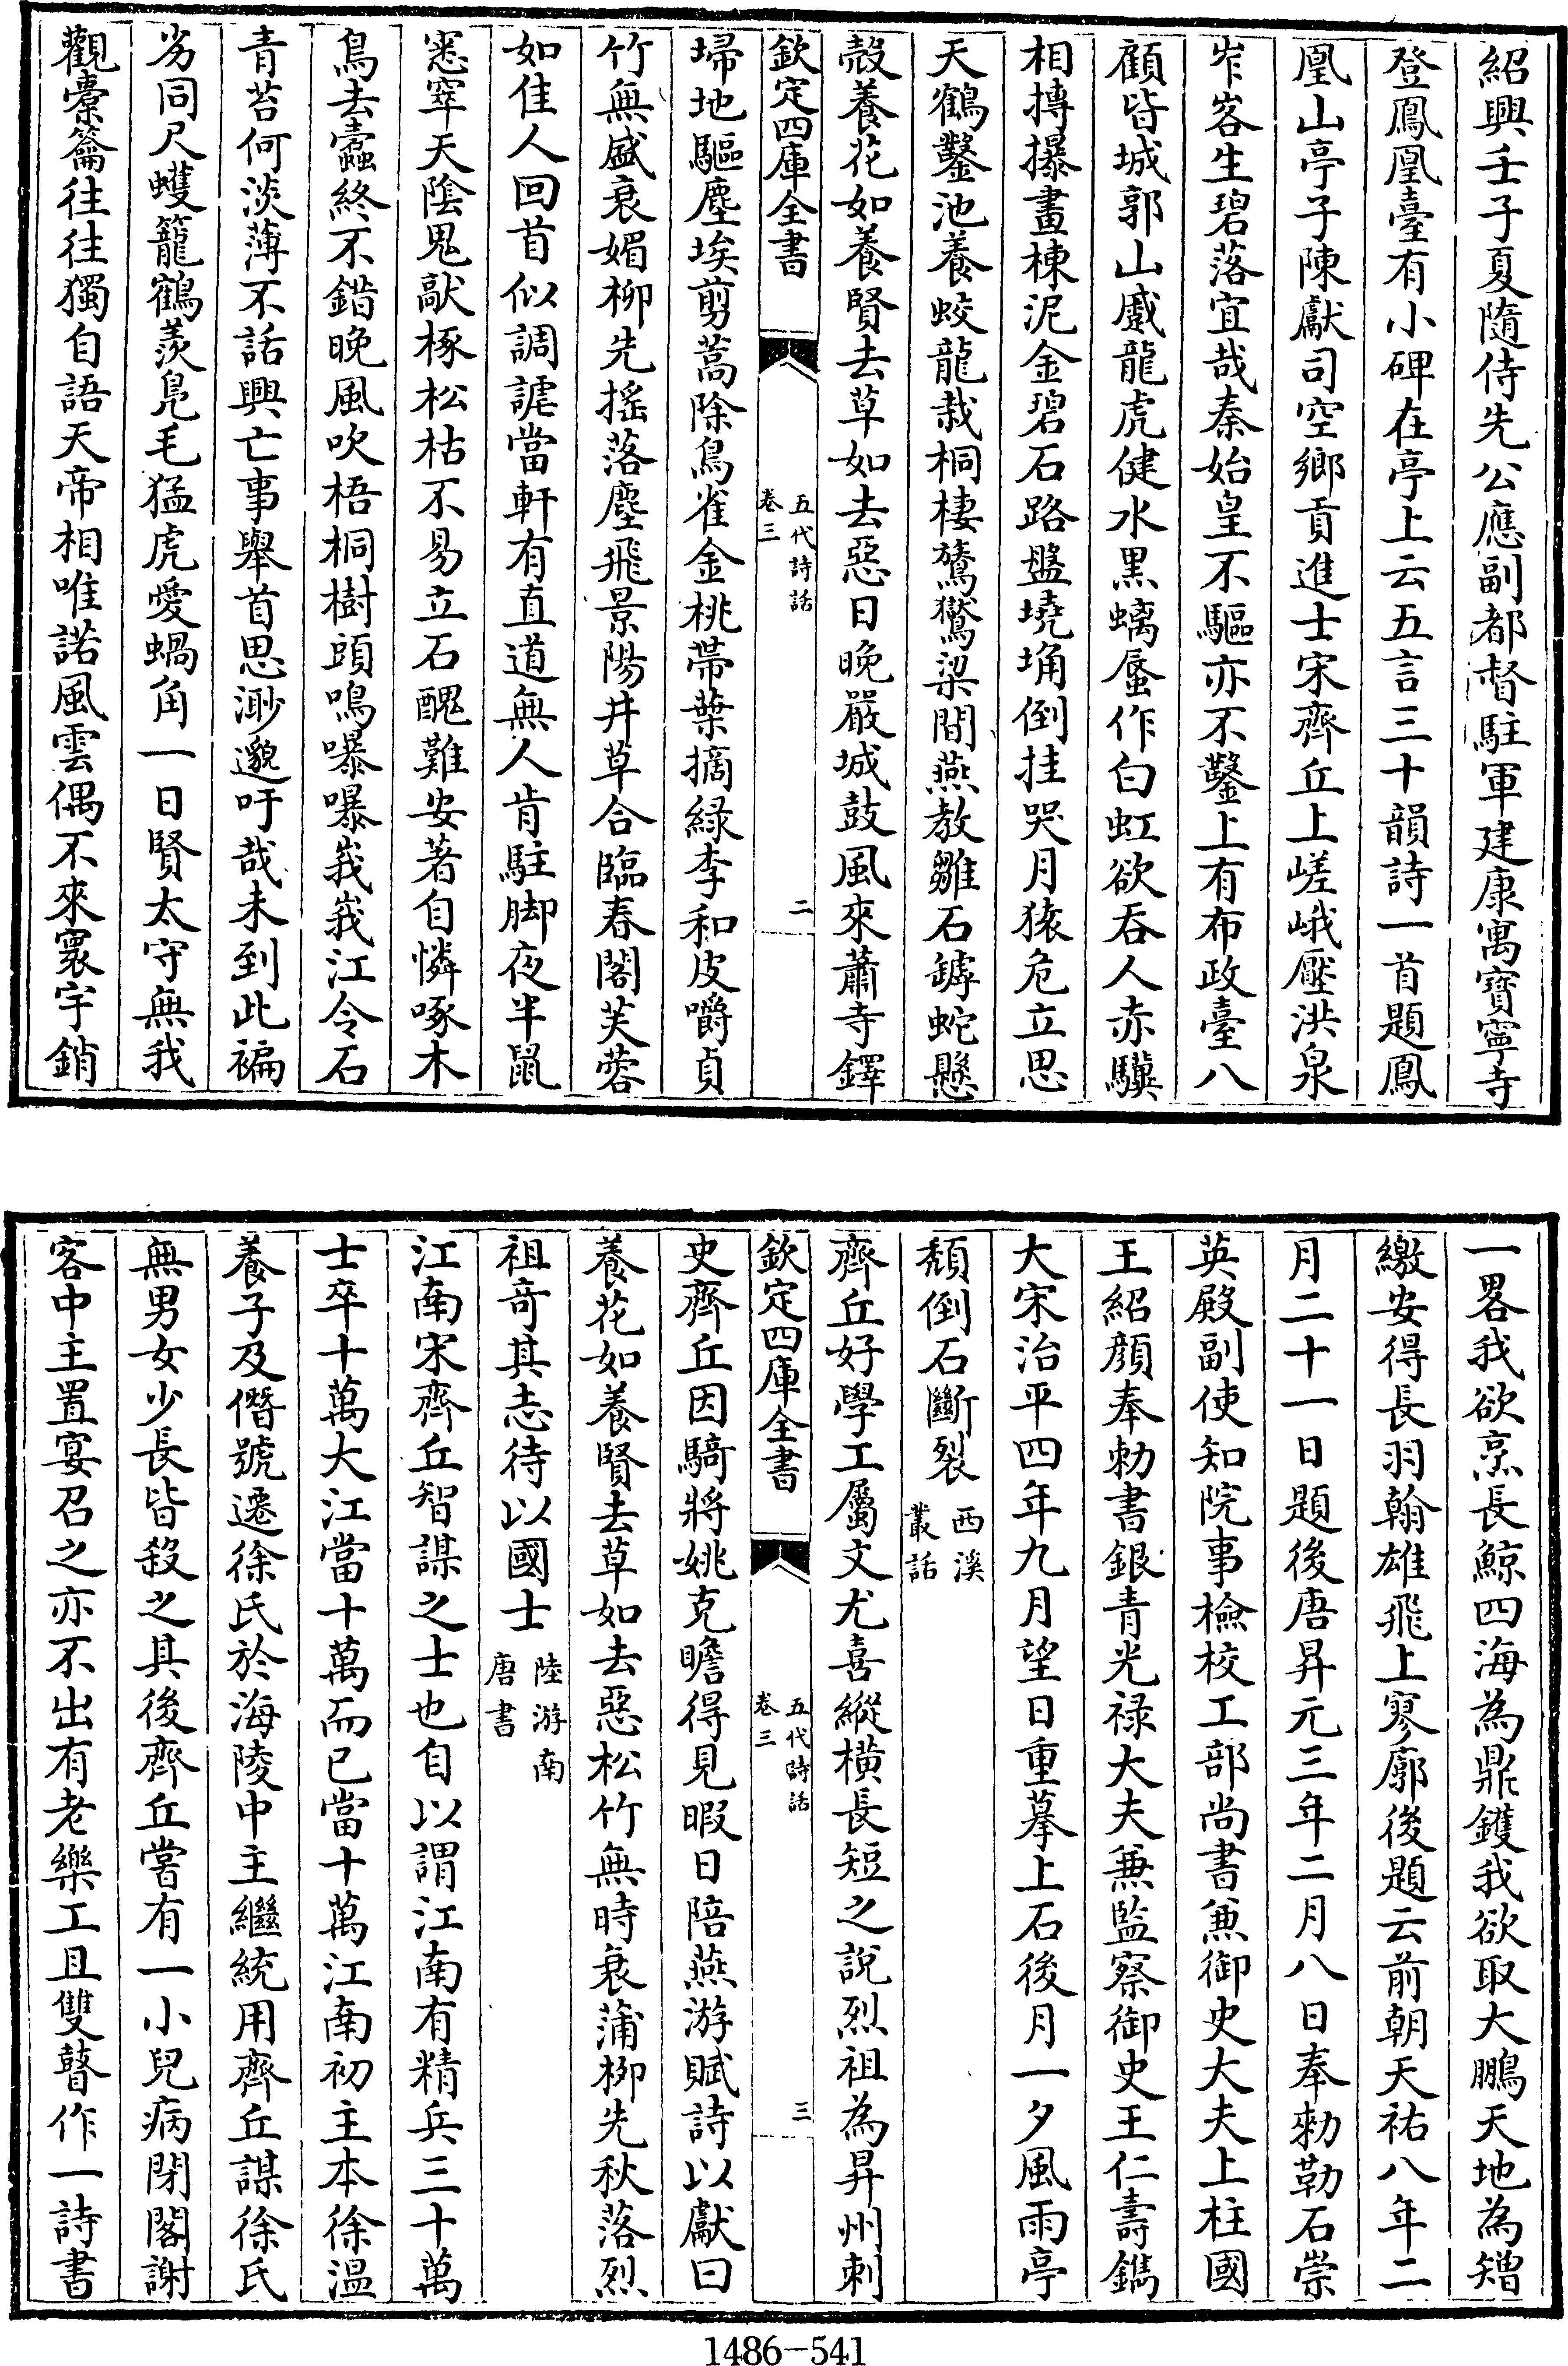 紹興壬子夏隨侍先公應副都督駐軍建康寓寶寧寺
登鳳凰臺有小碑在亭上云五言三十韻詩一首題鳳
凰山亭子陳獻司空鄉貢進士宋齊丘上嵯峨壓洪泉
岝峉生碧落宜哉秦始皇不驅亦不鑿上有布政臺八
顧皆城郭山蹙龍虎健水黑螭蜃作白虹欲吞人赤驥
相摶㩧畫棟泥金碧石路盤墝埆倒挂哭月猿危立思
天鶴鑿池養蛟龍栽桐棲鸑鷟梁間燕教雛石罅蛇懸
殼養花如養賢去草如去惡日晚嚴城鼓風來蕭寺鐸
欽定四庫全書
五代詩話
卷三
二
埽地驅塵埃剪蒿除鳥雀金桃帶葉摘緑李和皮嚼貞
竹無盛衰媚柳先搖落塵飛景陽井草合臨春閣芙蓉
如佳人回首似調謔當軒有直道無人肯駐脚夜半鼠
窸窣天陰鬼敲椓松枯不易立石醜難安著自憐啄木
鳥去蠧終不錯晚風吹梧桐樹頭鳴嚗嚗峩峩江令石
青苔何淡薄不話興亡事舉首思渺邈吁哉未到此褊
劣同尺蠖籠鶴羨鳧毛猛虎愛蝸角一日賢太守無我
觀橐籥往往獨自語天帝相唯諾風雲偶不來寰宇銷
一畧我欲烹長鯨四海為鼎鑊我欲取大鵬天地為矰
繳安得長羽翰雄飛上寥廓後題云前朝天祐八年二
月二十一日題後唐昇元三年二月八日奉勅勒石崇
英殿副使知院事檢校工部尚書兼御史大夫上柱國
王紹顔奉勅書銀青光禄大夫兼監察御史王仁壽鐫
大宋治平四年九月望日重摹上石後月一夕風雨亭
頽倒石斷裂西溪
叢話
齊丘好學工屬文尤喜縱横長短之說烈祖為昇州刺
欽定四庫全書
五代詩話
卷三
三
史齊丘因騎將姚克贍得見暇日陪燕游賦詩以獻曰
養花如養賢去草如去惡松竹無時衰蒲柳先秋落烈
祖竒其志待以國士陸游南
唐書
江南宋齊丘智謀之士也自以謂江南有精兵三十萬
士卒十萬大江當十萬而已當十萬江南初主本徐温
養子及僭號遷徐氏於海陵中主繼統用齊丘謀徐氏
無男女少長皆殺之其後齊丘嘗有一小兒病閉閣謝
客中主置宴召之亦不出有老樂工且雙瞽作一詩書
1486-541